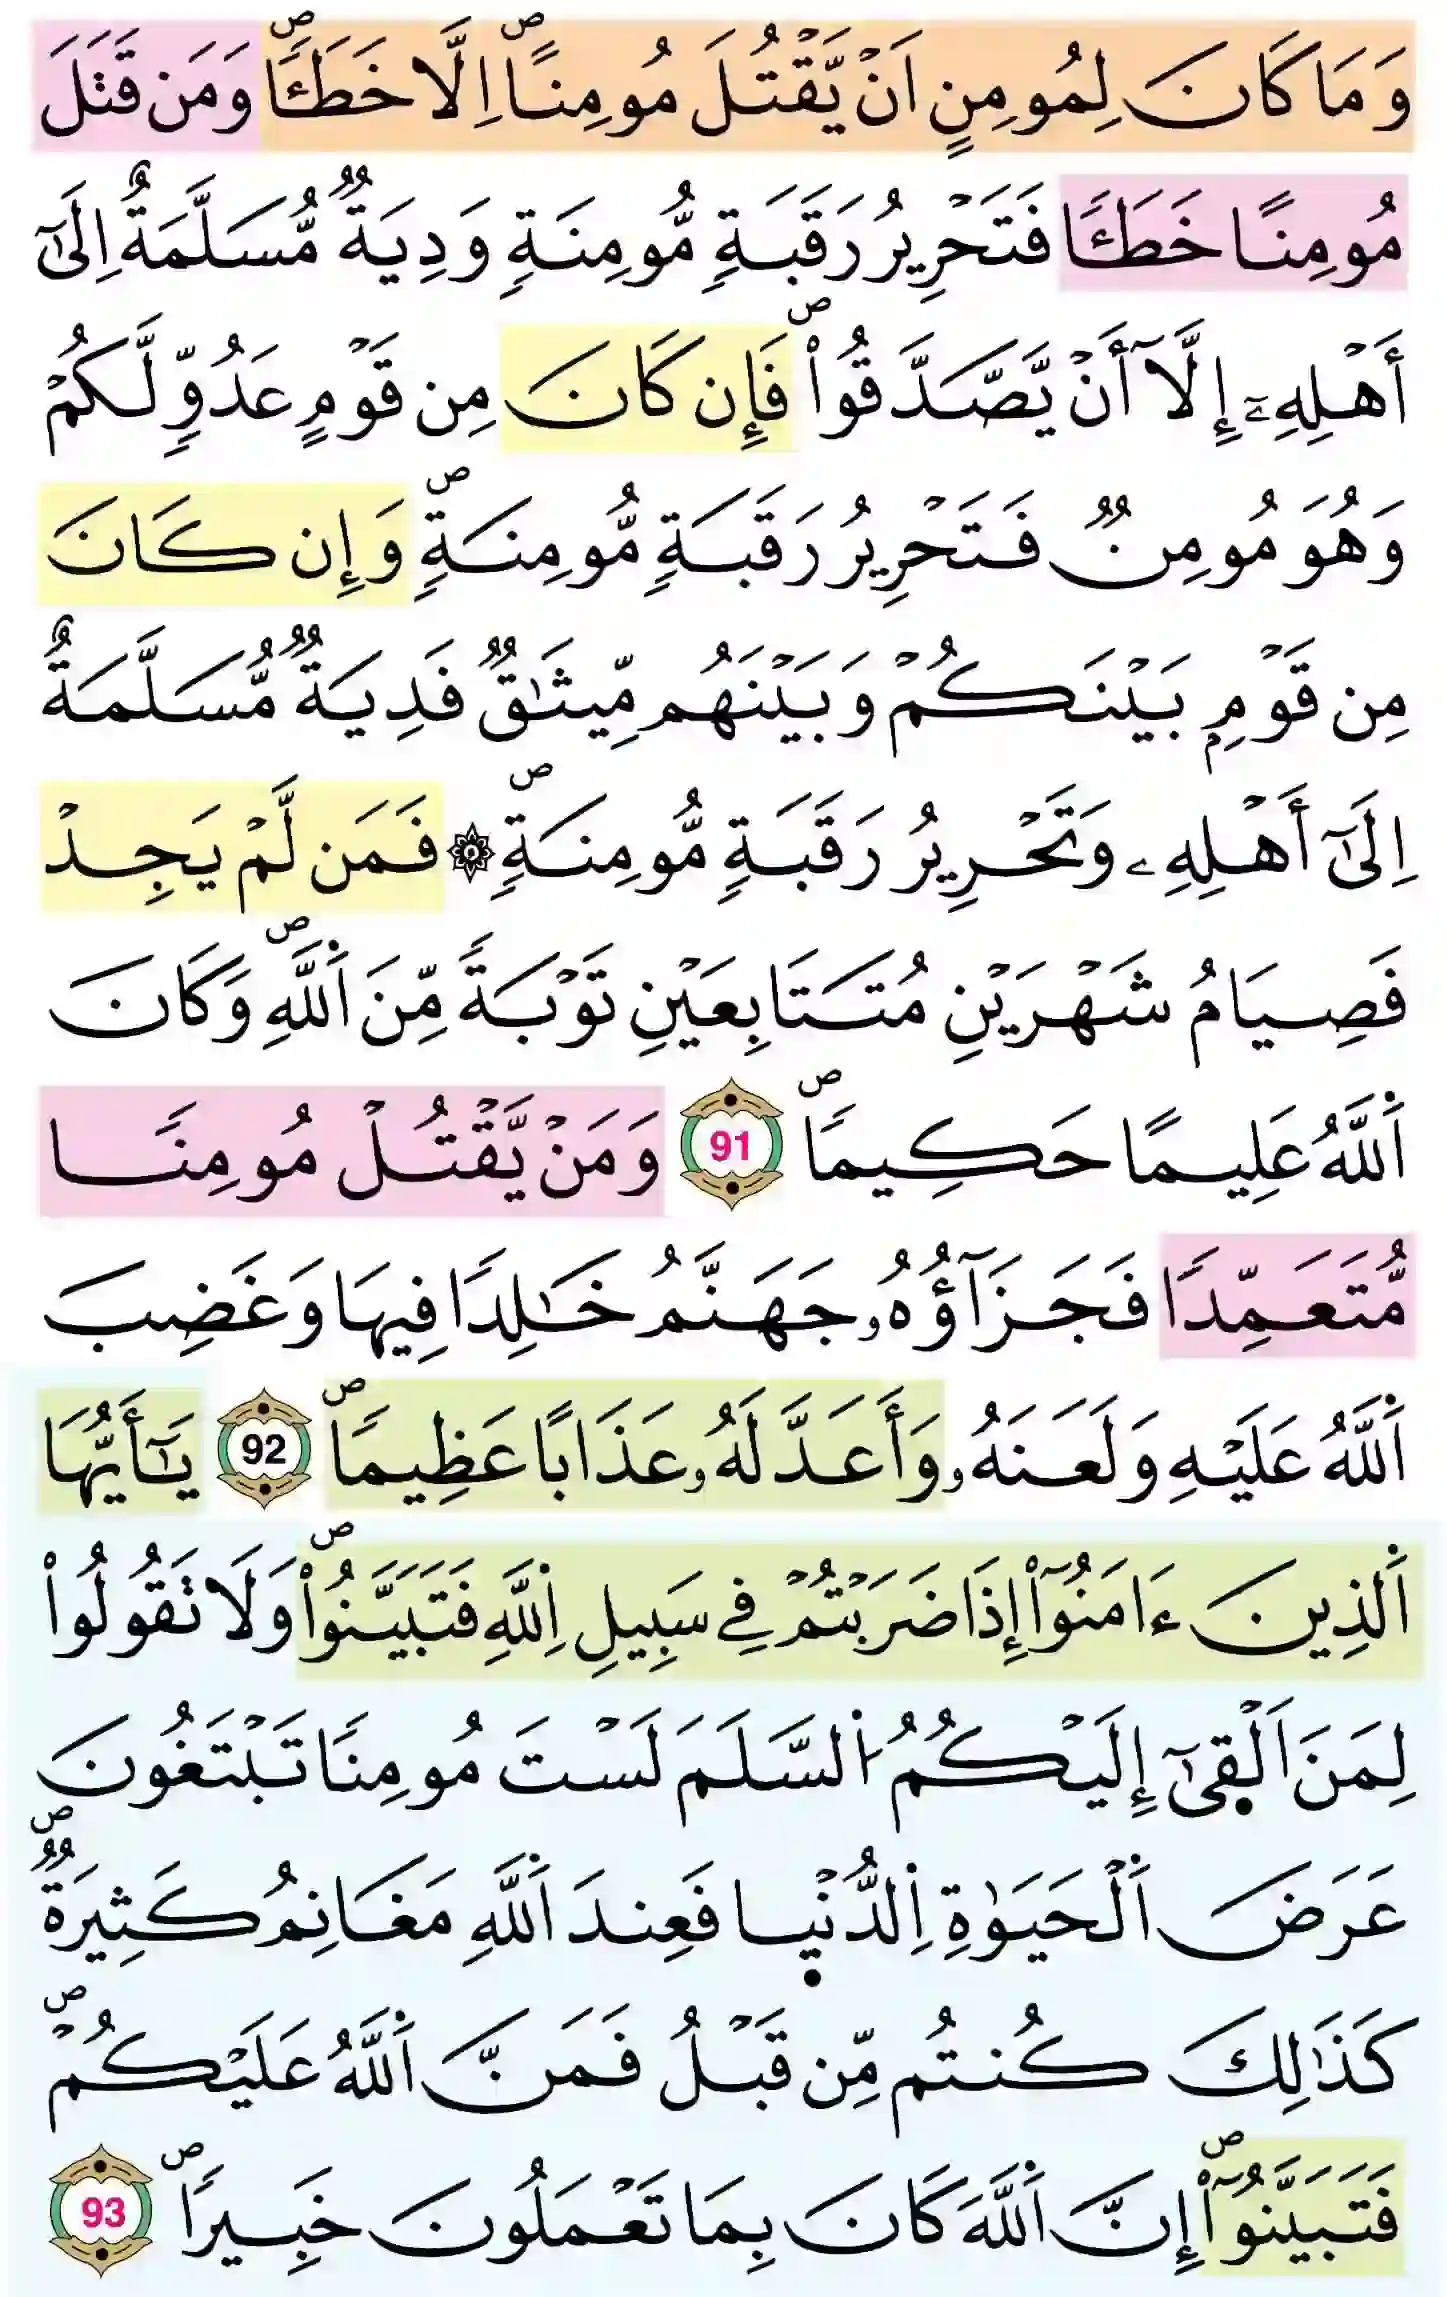 وَمَا كَانَ لِمُومِنٍ اَنْ يَّقْتُلَ مُومِناً اِلَّا خَطَـٔاًۖ وَمَن قَتَلَ
مُومِنًا خَطَـٔاً فَتَحْرِيرُ رَقَبَةٍ مُّومِنَةٍ وَدِيَةٌ مُّسَلَّمَةٌ اِلَىٰٓ
أَهْلِهِۦٓ إِلَّآ أَنْ يَّصَّدَّقُواْۖ فَإِن كَانَ مِن قَوْمٍ عَدُوٍّ لَّكُمْ
وَهُوَ مُومِنٌ فَتَحْرِيرُ رَقَبَةٍ مُّومِنَةٍۖ وَإِن كَانَ
مِن قَوْمِۢ بَيْنَكُمْ وَبَيْنَهُم مِّيثَٰقٌ فَدِيَةٌ مُّسَلَّمَةٌ
اِلَىٰٓ أَهْلِهِۦ وَتَحْرِيرُ رَقَبَةٍ مُّومِنَةٍۖ ۞ فَمَن لَّمْ يَجِدْ
فَصِيَامُ شَهْرَيْنِ مُتَتَابِعَيْنِ تَوْبَةً مِّنَ اَللَّهِۖ وَكَانَ
اَللَّهُ عَلِيمًا حَكِيماًۖ 91 وَمَنْ يَّقْتُلْ مُومِنًا
مُّتَعَمِّدًا فَجَزَآؤُهُۥ جَهَنَّمُ خَٰلِدًا فِيهَا وَغَضِبَ
اَللَّهُ عَلَيْهِ وَلَعَنَهُۥ وَأَعَدَّ لَهُۥ عَذَابًا عَظِيماًۖ 92 يَٰٓأَيُّهَا
اَلذِينَ ءَامَنُوٓاْ إِذَا ضَرَبْتُمْ فِے سَبِيلِ اِللَّهِ فَتَبَيَّنُواْۖ وَلَا تَقُولُواْ
لِمَنَ اَلْقٜىٰٓ إِلَيْكُمُ اُلسَّلَمَ لَسْتَ مُومِنًا تَبْتَغُونَ
عَرَضَ اَلْحَيَوٰةِ اِلدُّنْيٜا فَعِندَ اَللَّهِ مَغَانِمُ كَثِيرَةٌۖ
كَذَٰلِكَ كُنتُم مِّن قَبْلُ فَمَنَّ اَللَّهُ عَلَيْكُمْۖ
فَتَبَيَّنُوٓاْۖ إِنَّ اَللَّهَ كَانَ بِمَا تَعْمَلُونَ خَبِيراًۖ 93